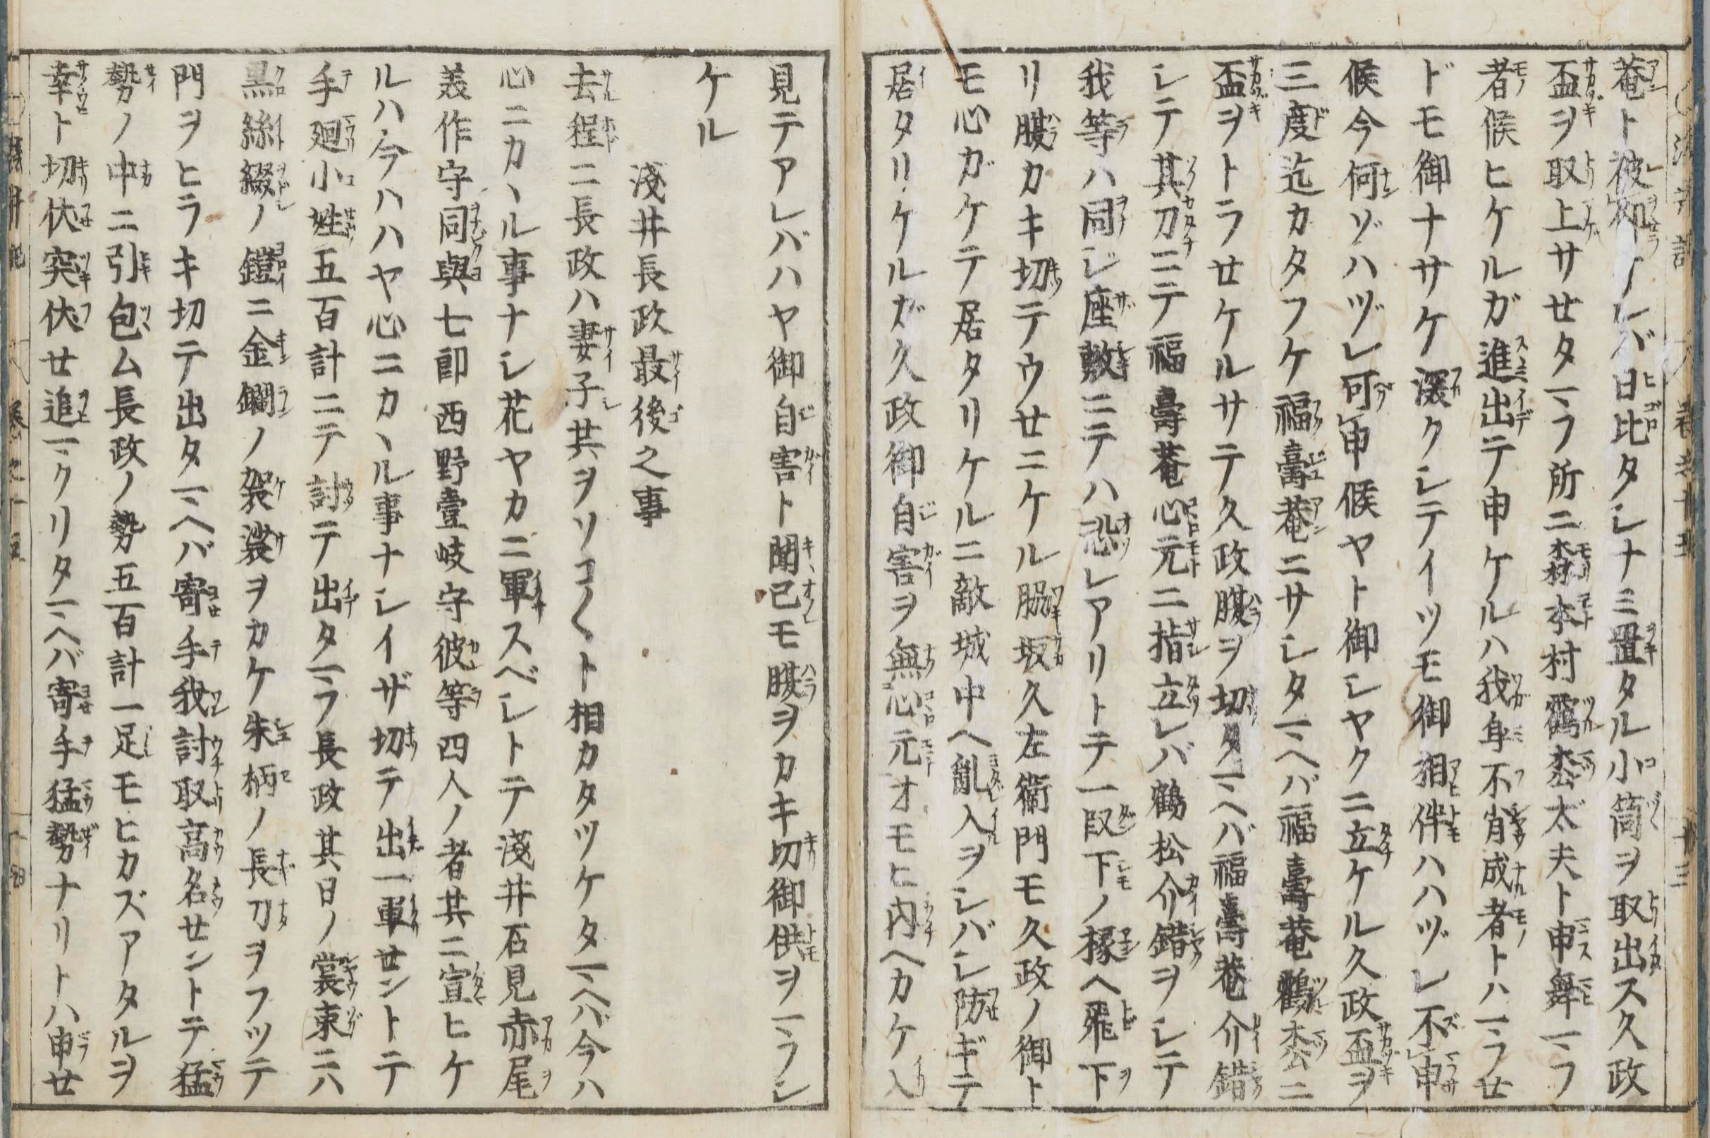 菴ト被仰ケレバ日比タシナミ置タル小筒ヲ取出ス久政
盃ヲ取上サセタマフ所ニ森本村鶴枩太夫ト申舞マフ
者候ヒケルガ進出テ申ケルハ我身不肖成者トハマフセ
ドモ御ナサケ深クシテイツモ御相伴ハハヅレ不申
候今何ゾハヅレ可申候ヤト御シヤクニ立ケル久政盃ヲ
三度迄カタフケ福壽菴ニサシタマヘバ福壽菴鶴枩ニ
盃ヲトラセケルサテ久政腹ヲ切タマヘバ福壽菴介錯
シテ其刀ニテ福壽菴心元ニ指立レバ鶴松介錯ヲシテ
我等ハ同シ座敷ニテハ恐レアリトテ一段下ノ椽ヘ飛下
リ腹カキ切テウセニケル脇坂久左衛門モ久政ノ御ト
モ心ガケテ居タリケルニ敵城中ヘ亂入ヲシバシ防ギテ
居タリケルガ久政御自害ヲ無心元オモヒ内ヘカケ入
見テアレバハヤ御自害ト聞已モ腹ヲカキ切御供ヲマフシ
ケル
淺井長政最後之事
去程ニ長政ハ妻子其ヲソコ〱ト相カタツケタマヘバ今ハ
心ニカヽル事ナシ花ヤカニ軍スベシトテ淺井石見赤尾
美作守同與七郎西野壹岐守彼等四人ノ者其ニ宣ヒケ
ルハ今ハハヤ心ニカヽル事ナシイザ切テ出一軍セントテ
手廻小姓五百計ニテ討テ出タマフ長政其日ノ裳束ニハ
黒絲綴ノ鎧ニ金襴ノ袈裟ヲカケ朱柄ノ長刀ヲフツテ
門ヲヒラキ切テ出タマヘバ寄手我討取高名セントテ猛
勢ノ中ニ引包ム長政ノ勢五百計一足モヒカズアタルヲ
幸ト切伏突伏セ追マクリタマヘバ寄手猛勢ナリトハ申セ